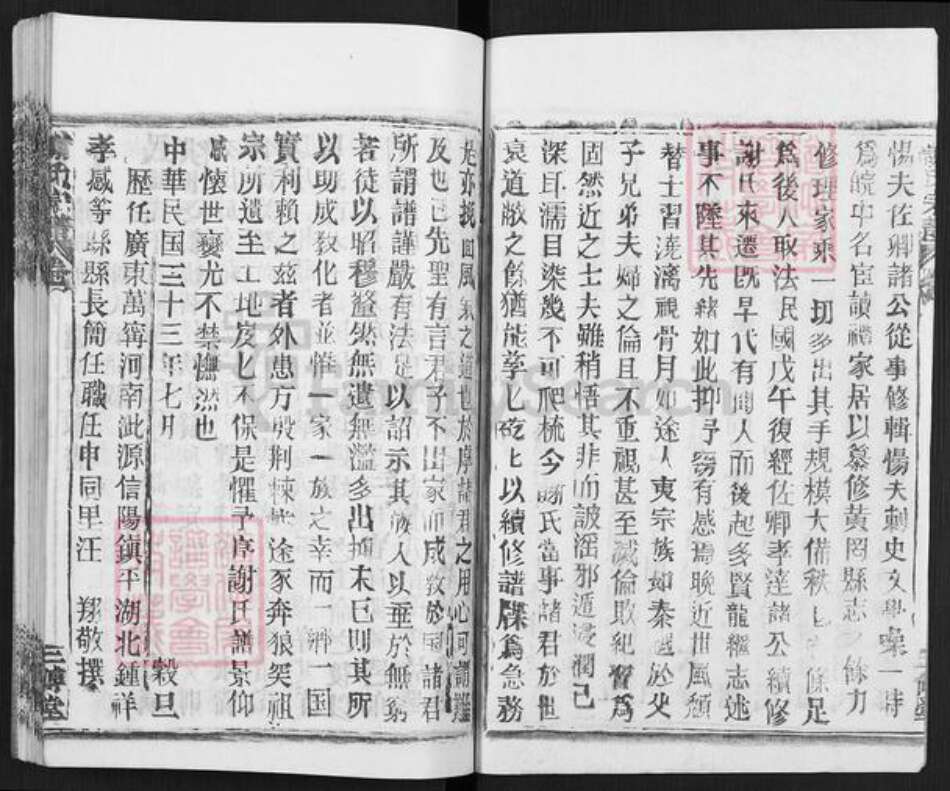 惕夫佐卿諸公從事修輯惕夫刺史文學噪一時
為皖中名宦讀禮家居以纂修黃岡縣志之餘力
修理家乘一切多出其手規模大備秩 條足
為後人取法民國戊午復經佐卿孝達諸公續修
謝氏來遷既早代有聞人而後起多賢龍繼志述
事不墜其先緒如此抑予竊有感焉晚近世風頹
替士習澆漓視骨月如途人夷宗族如秦越於父
子兄弟夫婦之倫且不重視甚至滅倫敗紀習為
固然近之士夫雖稍悟其非而詖淫邪遁浸潤已
深耳濡目染幾不可爬梳今謝氏當事諸君於世
衰道敝之餘猶能孳匕矻匕以續修譜牒為急務
是亦挽回風氣之道也於序諸君之用心可謂
及也已先聖有言君子不出家而成教於国諸君
所謂譜謹嚴有法足以詔示其族人以垂於無窮
若徒以昭穆釐然無遺無濫多出掫末已則其所
以助成教化者並惟一家一族之幸而一鄉一国
實利賴之兹者外患方殷荆棘 途豕奔狼突祖
宗所遺至土地岌匕不保是懼予序謝氏譜景仰
感懷世變尤不禁憮然也
中華民国三十三年七月 穀旦
歷任廣東萬寗河南泚源信陽鎮平湖北鍾祥
孝感等縣縣長簡任職任申同里汪 翔敬撰
三傳堂
FamilySearch